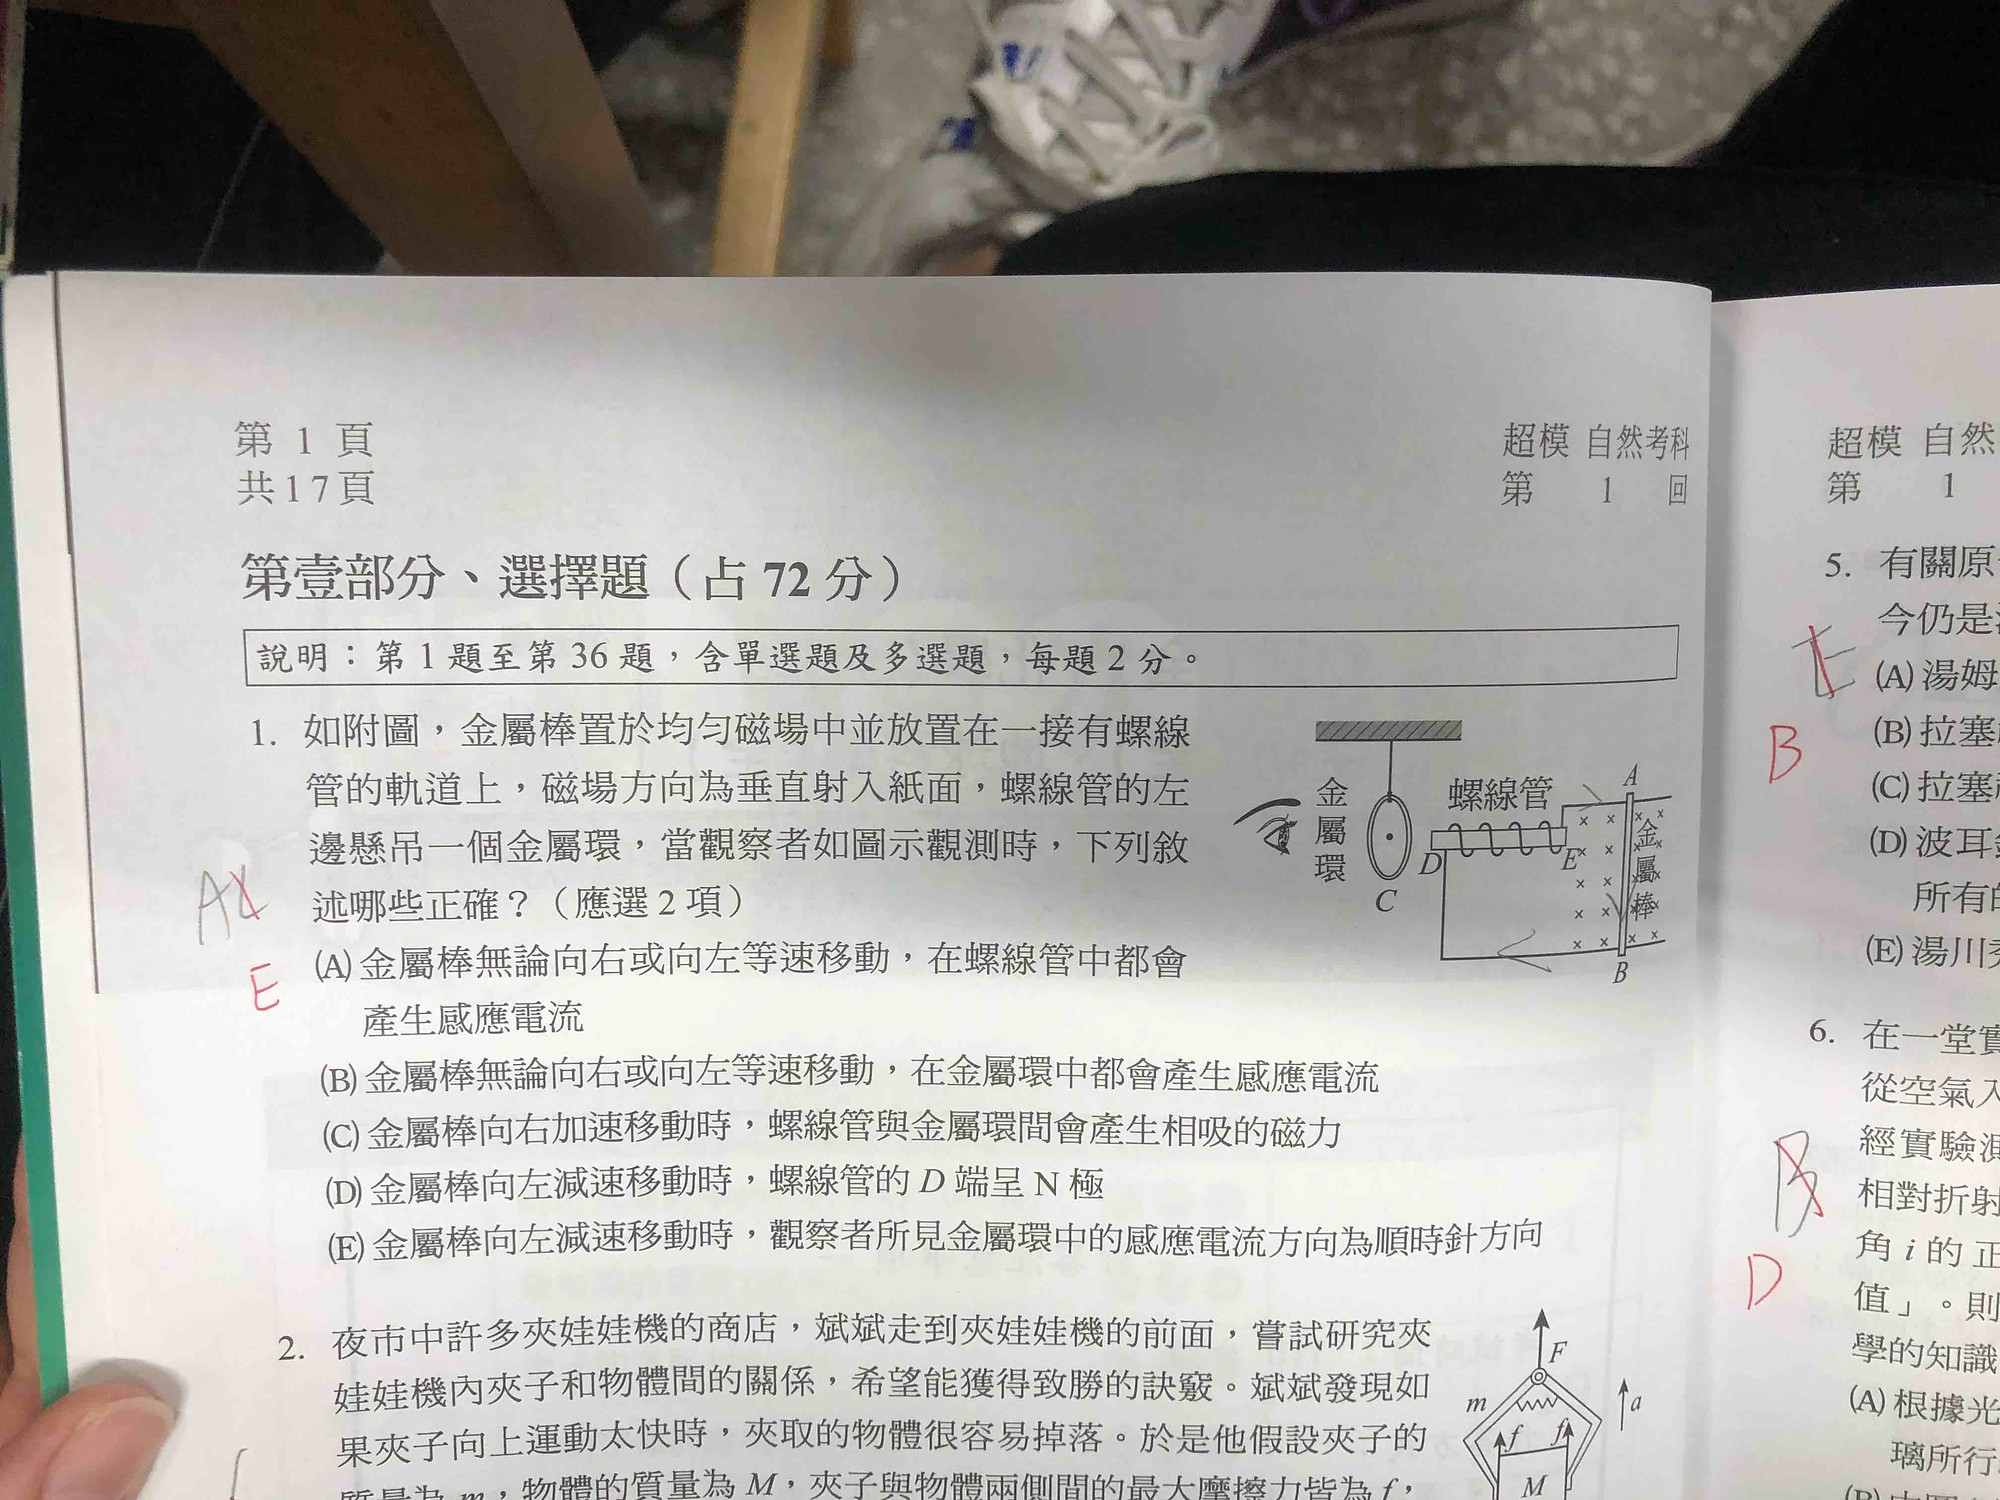 第 1 頁
共17頁
超模 自然考科
第 1 回
第壹部分、選擇題（占 72 分）
說明：第 1 題至第 36 題，含單選題及多選題，每題 2 分。
1. 如附圖，金屬棒置於均勻磁場中並放置在一接有螺線
管的軌道上，磁場方向為垂直射入紙面，螺線管的左
邊懸吊一個金屬環，當觀察者如圖示觀測時，下列敘
述哪些正確？（應選 2 項）
(A) 金屬棒無論向右或向左等速移動，在螺線管中都會
產生感應電流
(B) 金屬棒無論向右或向左等速移動，在金屬環中都會產生感應電流
(C) 金屬棒向右加速移動時，螺線管與金屬環間會產生相吸的磁力
(D) 金屬棒向左減速移動時，螺線管的 D 端呈 N 極
(E) 金屬棒向左減速移動時，觀察者所見金屬環中的感應電流方向為順時針方向
A
E
金屬環
C
螺線管
D
E
A
金屬棒
B
2. 夜市中許多夾娃娃機的商店，斌斌走到夾娃娃機的前面，嘗試研究夾
娃娃機內夾子和物體間的關係，希望能獲得致勝的訣竅。斌斌發現如
果夾子向上運動太快時，夾取的物體很容易掉落。於是他假設夾子的
質量為 m，物體的質量為 M，夾子與物體兩側間的最大摩擦力皆為 f，
F
m
a
f
f
M
超模 自然
第 1
5. 有關原
今仍是
(A) 湯姆
(B) 拉塞
(C) 拉塞
(D) 波耳
所有的
(E) 湯川
E
B
6. 在一堂實
從空氣入
經實驗測
相對折射
角 i 的正
值」。則
學的知識
(A) 根據光
璃所行
B
D